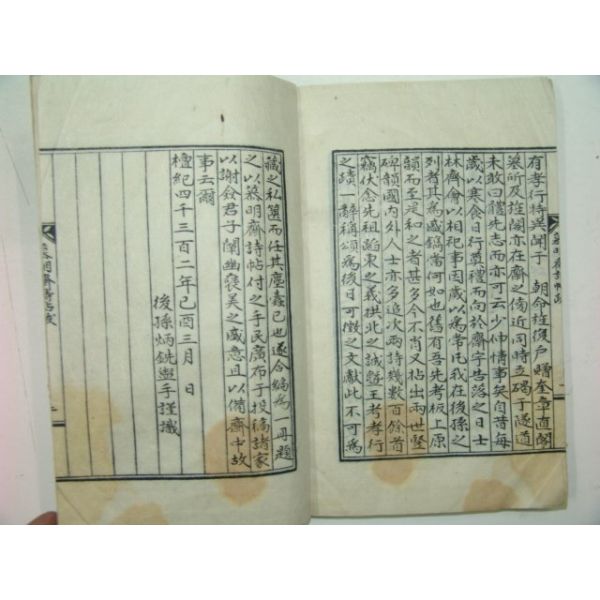 有孝行特異聞于 朝命旌復戶贈奎章直閣
墓所及旌閭亦在齋之傍近同時立碣于隧道
未敢曰禮先志而亦可云少伸情事矣自昔每
歲以寒食日行奠禮而向於齋宇告落之日士
林齊會以相祀事因歲以爲常氏我在後孫之
列者其爲感鎬當何如也舊有吾先考板上原
韻而至是和之者甚多今不肖又拈出兩世竪
碑韻國內外人士亦多追次兩詩幾數百餘首
竊伏念先祖蹈東之義拱北之誠曁王考孝行
之蹟 辭稱頌爲後日可徵之文獻此不可爲
藏之私篋而任其塵蠹已也遂合編爲一冊題
之以慕明齋詩帖付之手民廣布于投稿諸家
以謝僉君子闡幽褒美之盛意且以備齋中故
事云爾
檀紀四千三百二年己酉三月 日
後孫炳銑盥手謹識
慕明齋詩帖跋